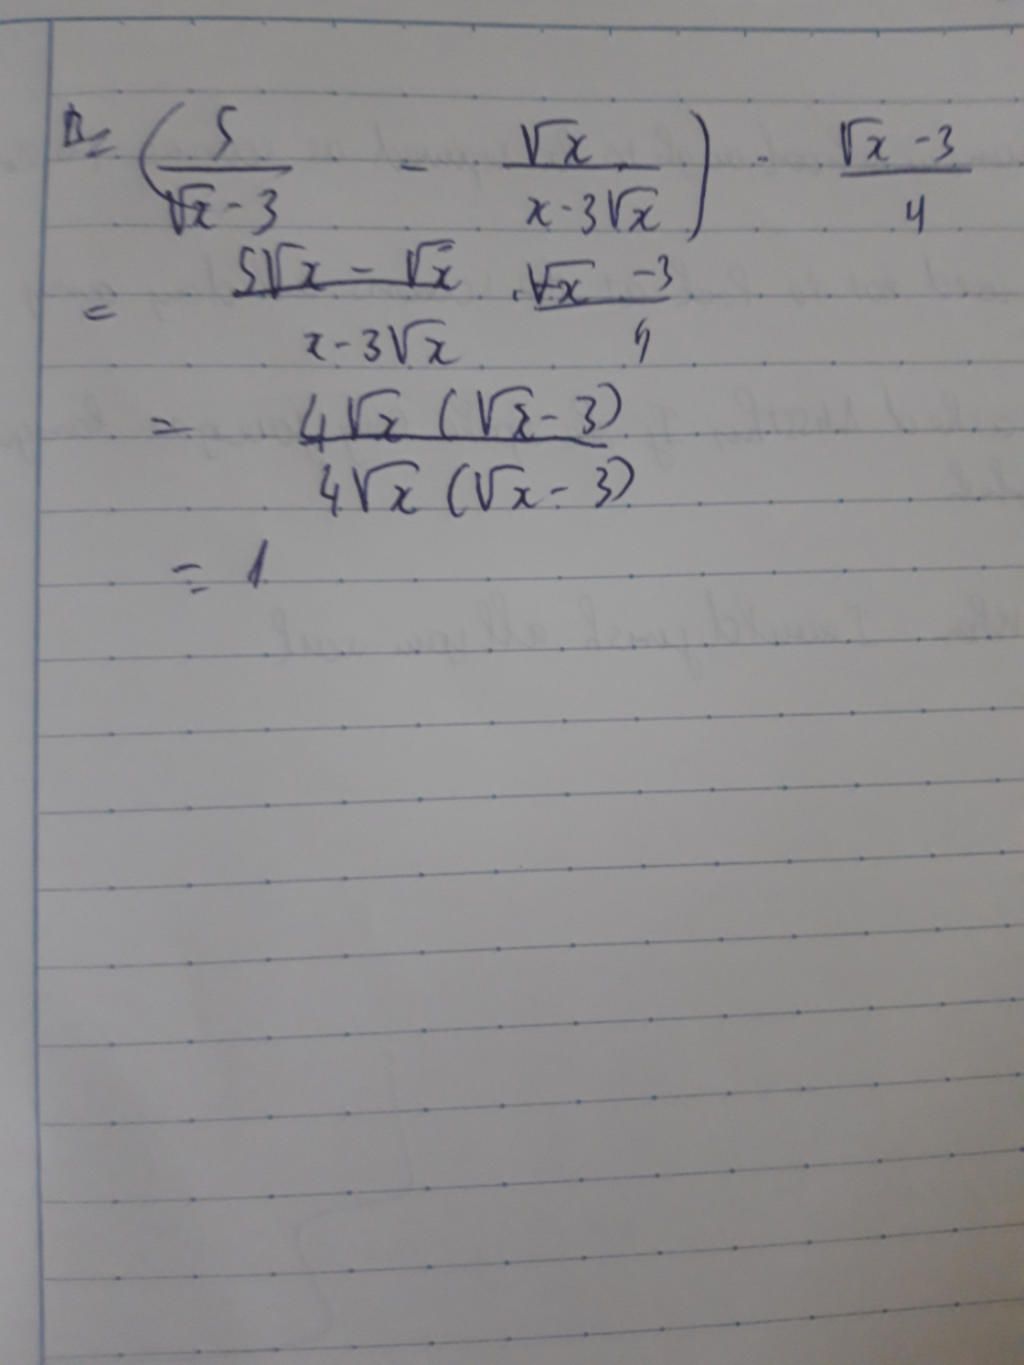 B = (5/(√x - 3) - √x/(x - 3√x)) · (√x - 3)/4
= (5√x - √x)/(x - 3√x) · (√x - 3)/4
= 4√x (√x - 3)/4√x (√x - 3)
= 1